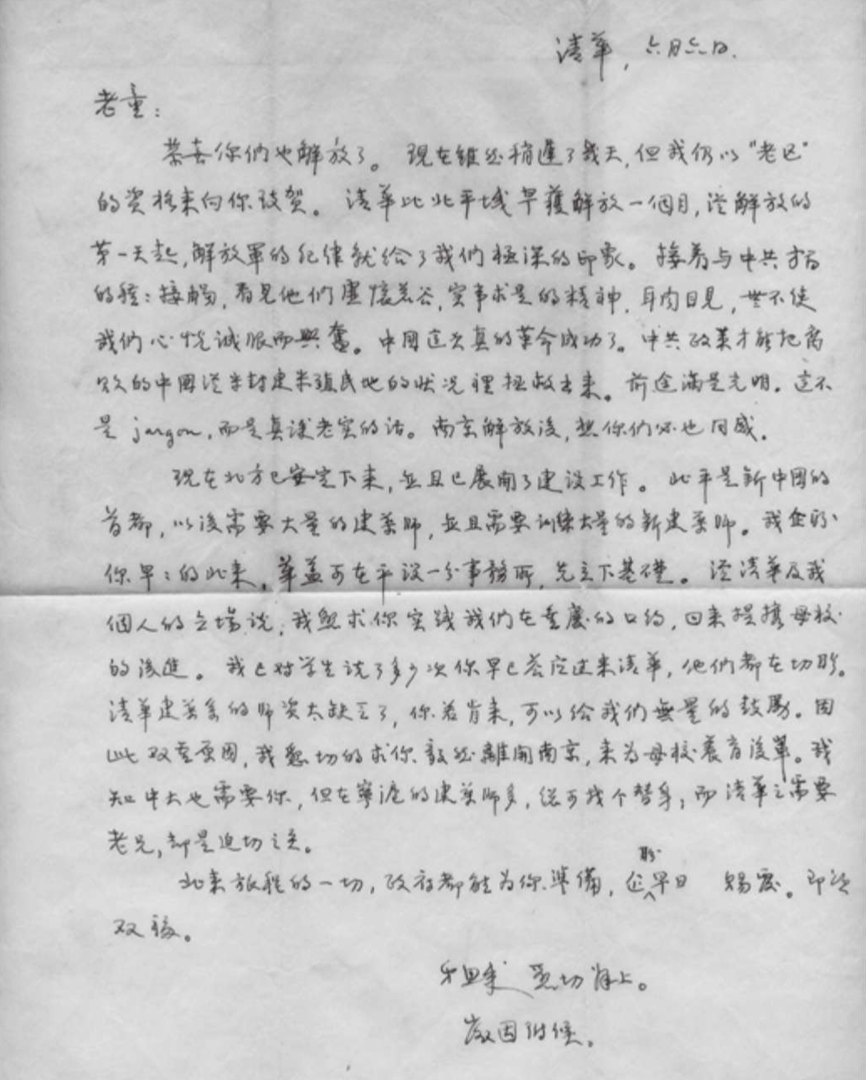 清華，六月六日.
老童：
恭喜你們也解放了。現在雖然稍遲了幾天，但我仍以"老区"
的資格来向你致賀。清華比北平城早獲解放一個月，從解放的
第一天起，解放軍的纪律就给了我們極深的印象。接着与中共方面
的種：接觸，看見他們虛懷若谷，实事求是的精神，耳闻目見，無不使
我們心悦誠服而興奮。中国这次真的革命成功了。中共政策才能把腐
败的中國從半封建半殖民地的状况裡拯救出来。前途滿是光明。这不
是 jargon，而是真誠老实的话。南京解放後，想你們必也同感。
現在北方已安定下来，並且已展開了建設工作。北平是新中國的
首都，以後需要大量的建築師，並且需要训练大量的新建築師。我企盼
你早：的北来。華蓋可在平設一分事務所，先立下基礎。從清華及我
個人的立場说，我懇求你实践我們在重慶的口约，回来提攜母校
的後進。我已对学生说了多少次你早已答应过来清華，他們都在切盼。
清華建築系的师资太缺乏了，你若肯来，可以给我們無量的鼓勵。因
此双重原因，我懇切的求你毅然離開南京，来为母校養育後輩。我
知中大也需要你，但在寧滬的建築师多，總可找个替身；而清華之需要
老兄，却是迫切之至。
北来旅程的一切，政府都能为你準備，企盼早日 賜覆。即頌
双綏。
弟思成 懇切拜上。
徽因附候。